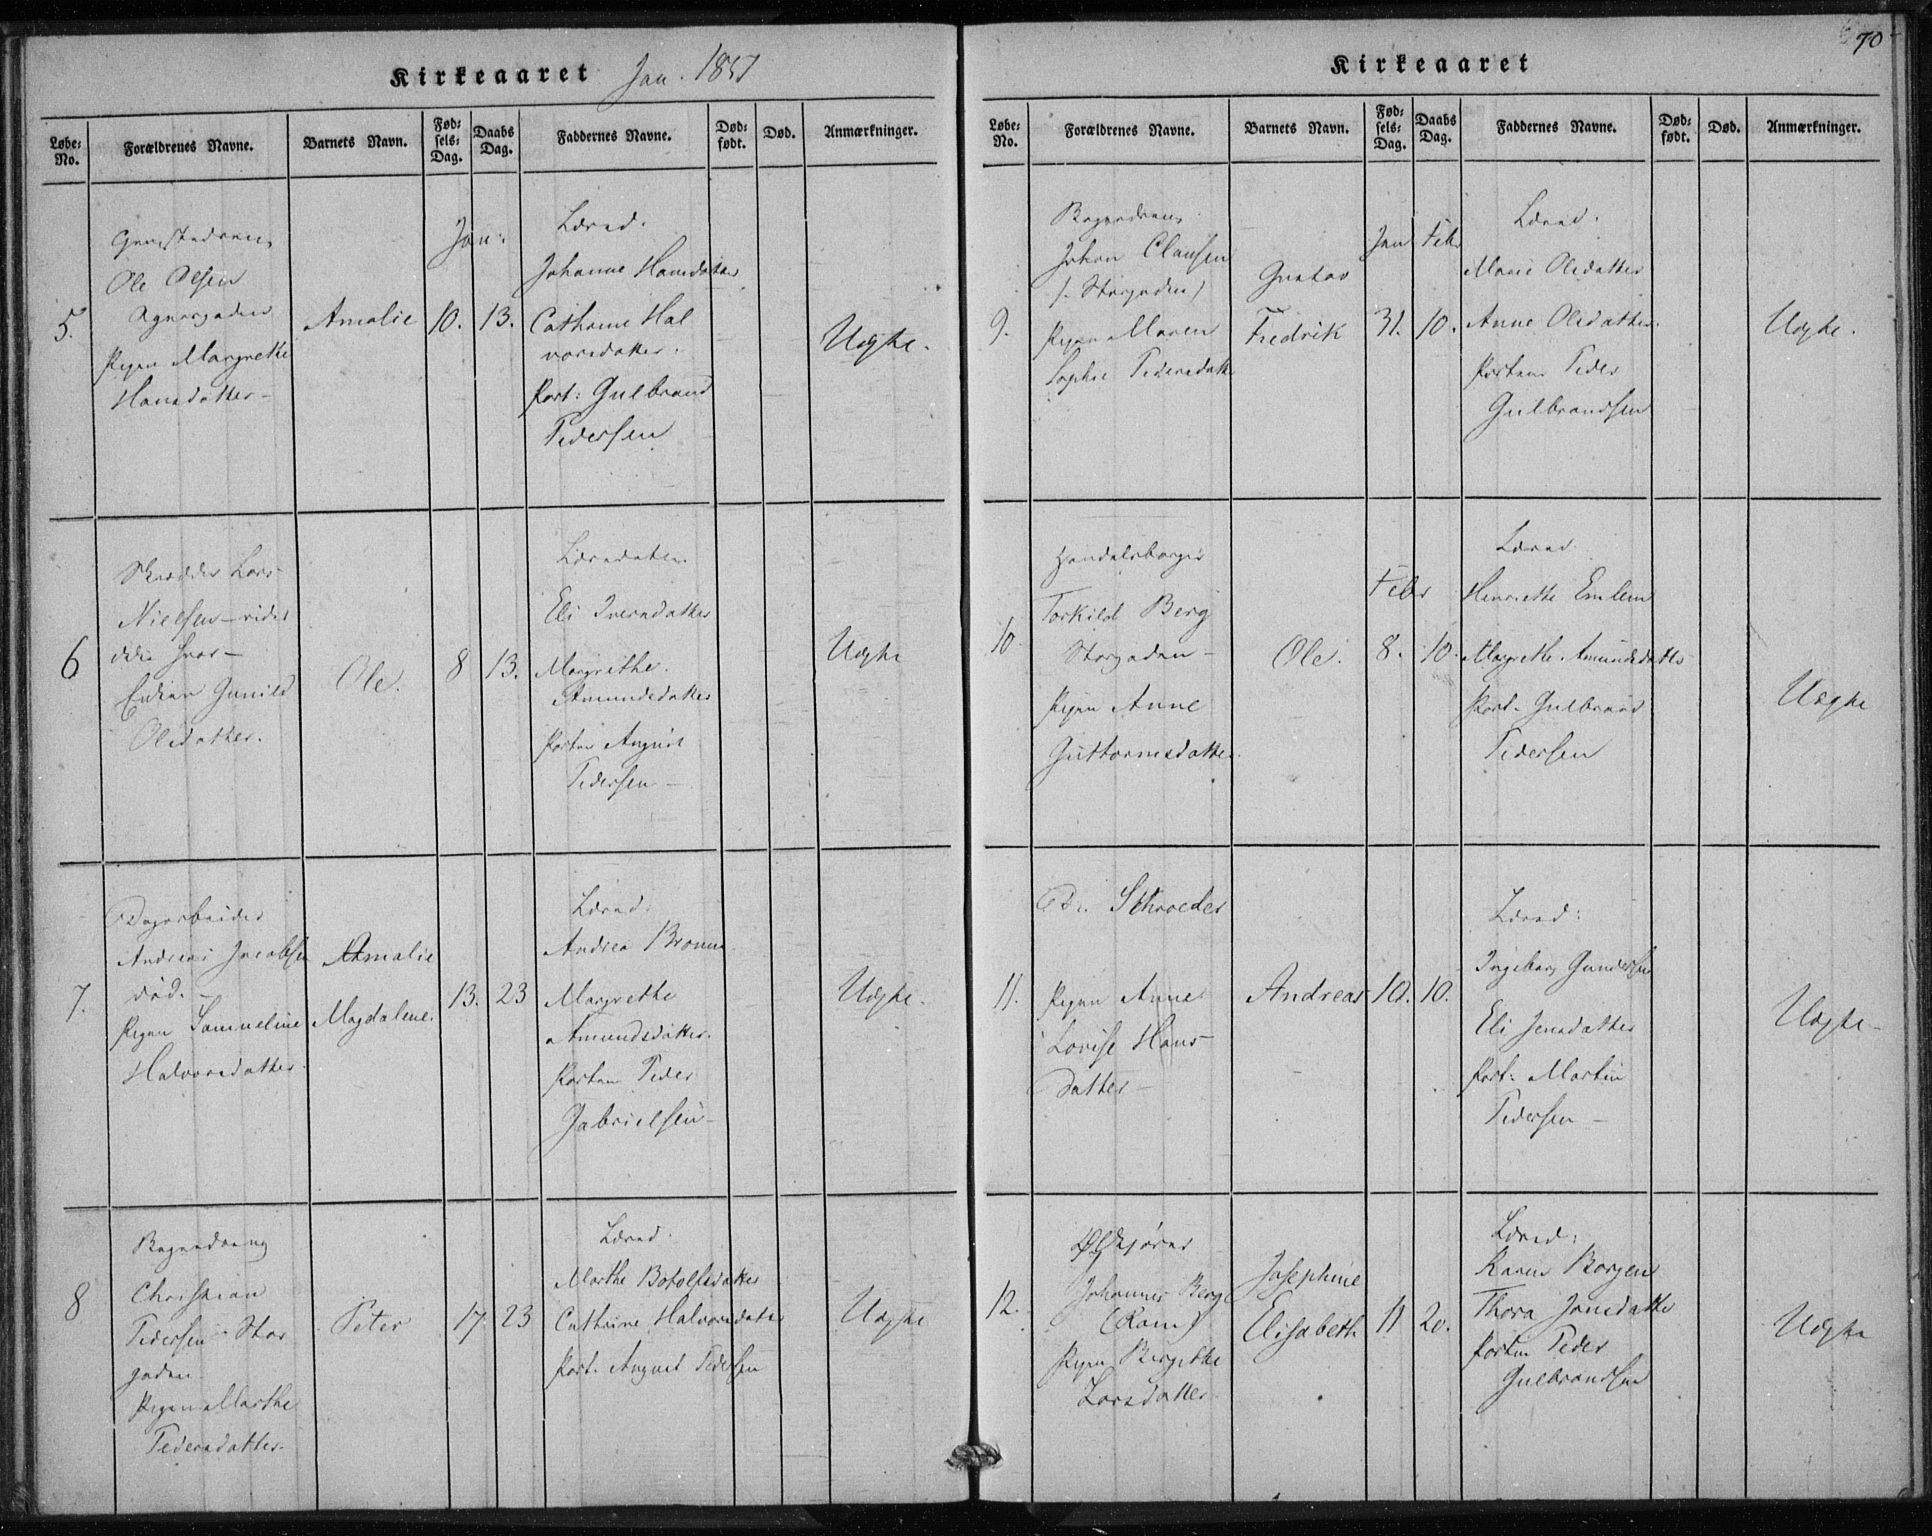 Kirkeaaret Jan. 1857
Løbe-No.
Forældrenes Navne.
Barnets Navn.
Fød-sels-Dag.
Daabs Dag.
Faddernes Navne.
Død-født.
Død.
Anmærkninger.
5.
Ole Olsen
Pigen Margrethe
Hansdatter
Amalie
Jan:
10.
13.
Johanne Hansdatter
Cathrine Hal
vorsdatter.
Port: Gulbrand
Pedersen
Uægte.
6
Skrædder Lars
Nielsen
Enken Gunild
Olsdatter.
Ole.
8
13.
Eli Iversdatter
Margrethe
Amundsdatter
Portør August
Pedersen
Uægte
7.
Dagarbeider
Andreas Jacobsen
død.
Pigen Samueline
Halvorsdatter
Amalie
Magdalene.
13.
23
Andrea
Margrethe
Amundsdatter.
Portør Peder
Gabrielsen
Uægte.
8
Christian
Pedersen Stor
gaden
Pigen Marthe
Pedersdatter.
Peter
17.
23
Marthe Botolfsdatter
Cathrine Halvorsdatter
Port. August Pedersen
Uægte
70
Kirkeaaret
Løbe-No.
Forældrenes Navne.
Barnets Navn.
Fød-sels-Dag.
Daabs Dag.
Faddernes Navne.
Død-født.
Død.
Anmærkninger.
9.
Johan Clausen
(Storgaden)
Pigen Maren
Sophie Pedersdatt
Gustav
Fredrik
Jan
31.
Febr
10.
Marie Olsdatter
Anne Olsdatter.
Portør Peder
Gulbrandsen
Uægte.
10
Handelsborger
Torkild Berg
Storgaden
Pigen Anne
Guttormsdatter.
Ole.
Febr
8.
10.
Henriette
Margrethe Amundsdatter
Port. Gulbrand
Pedersen
Uægte
11.
Schroeder
Pigen Anne
Lovise Hans
datter
Andreas
10.
10.
Ingeborg Gundersen
Eli Jensdatter
Port. Martin
Pedersen
Uægte
12.
Johannes Berg
Pigen Birgitte
Larsdatter
Josephine
Elisabeth
11
20.
Karen Borgen
Thora Jonsdatter
Portør Peder
Gulbrandsen
Uægte